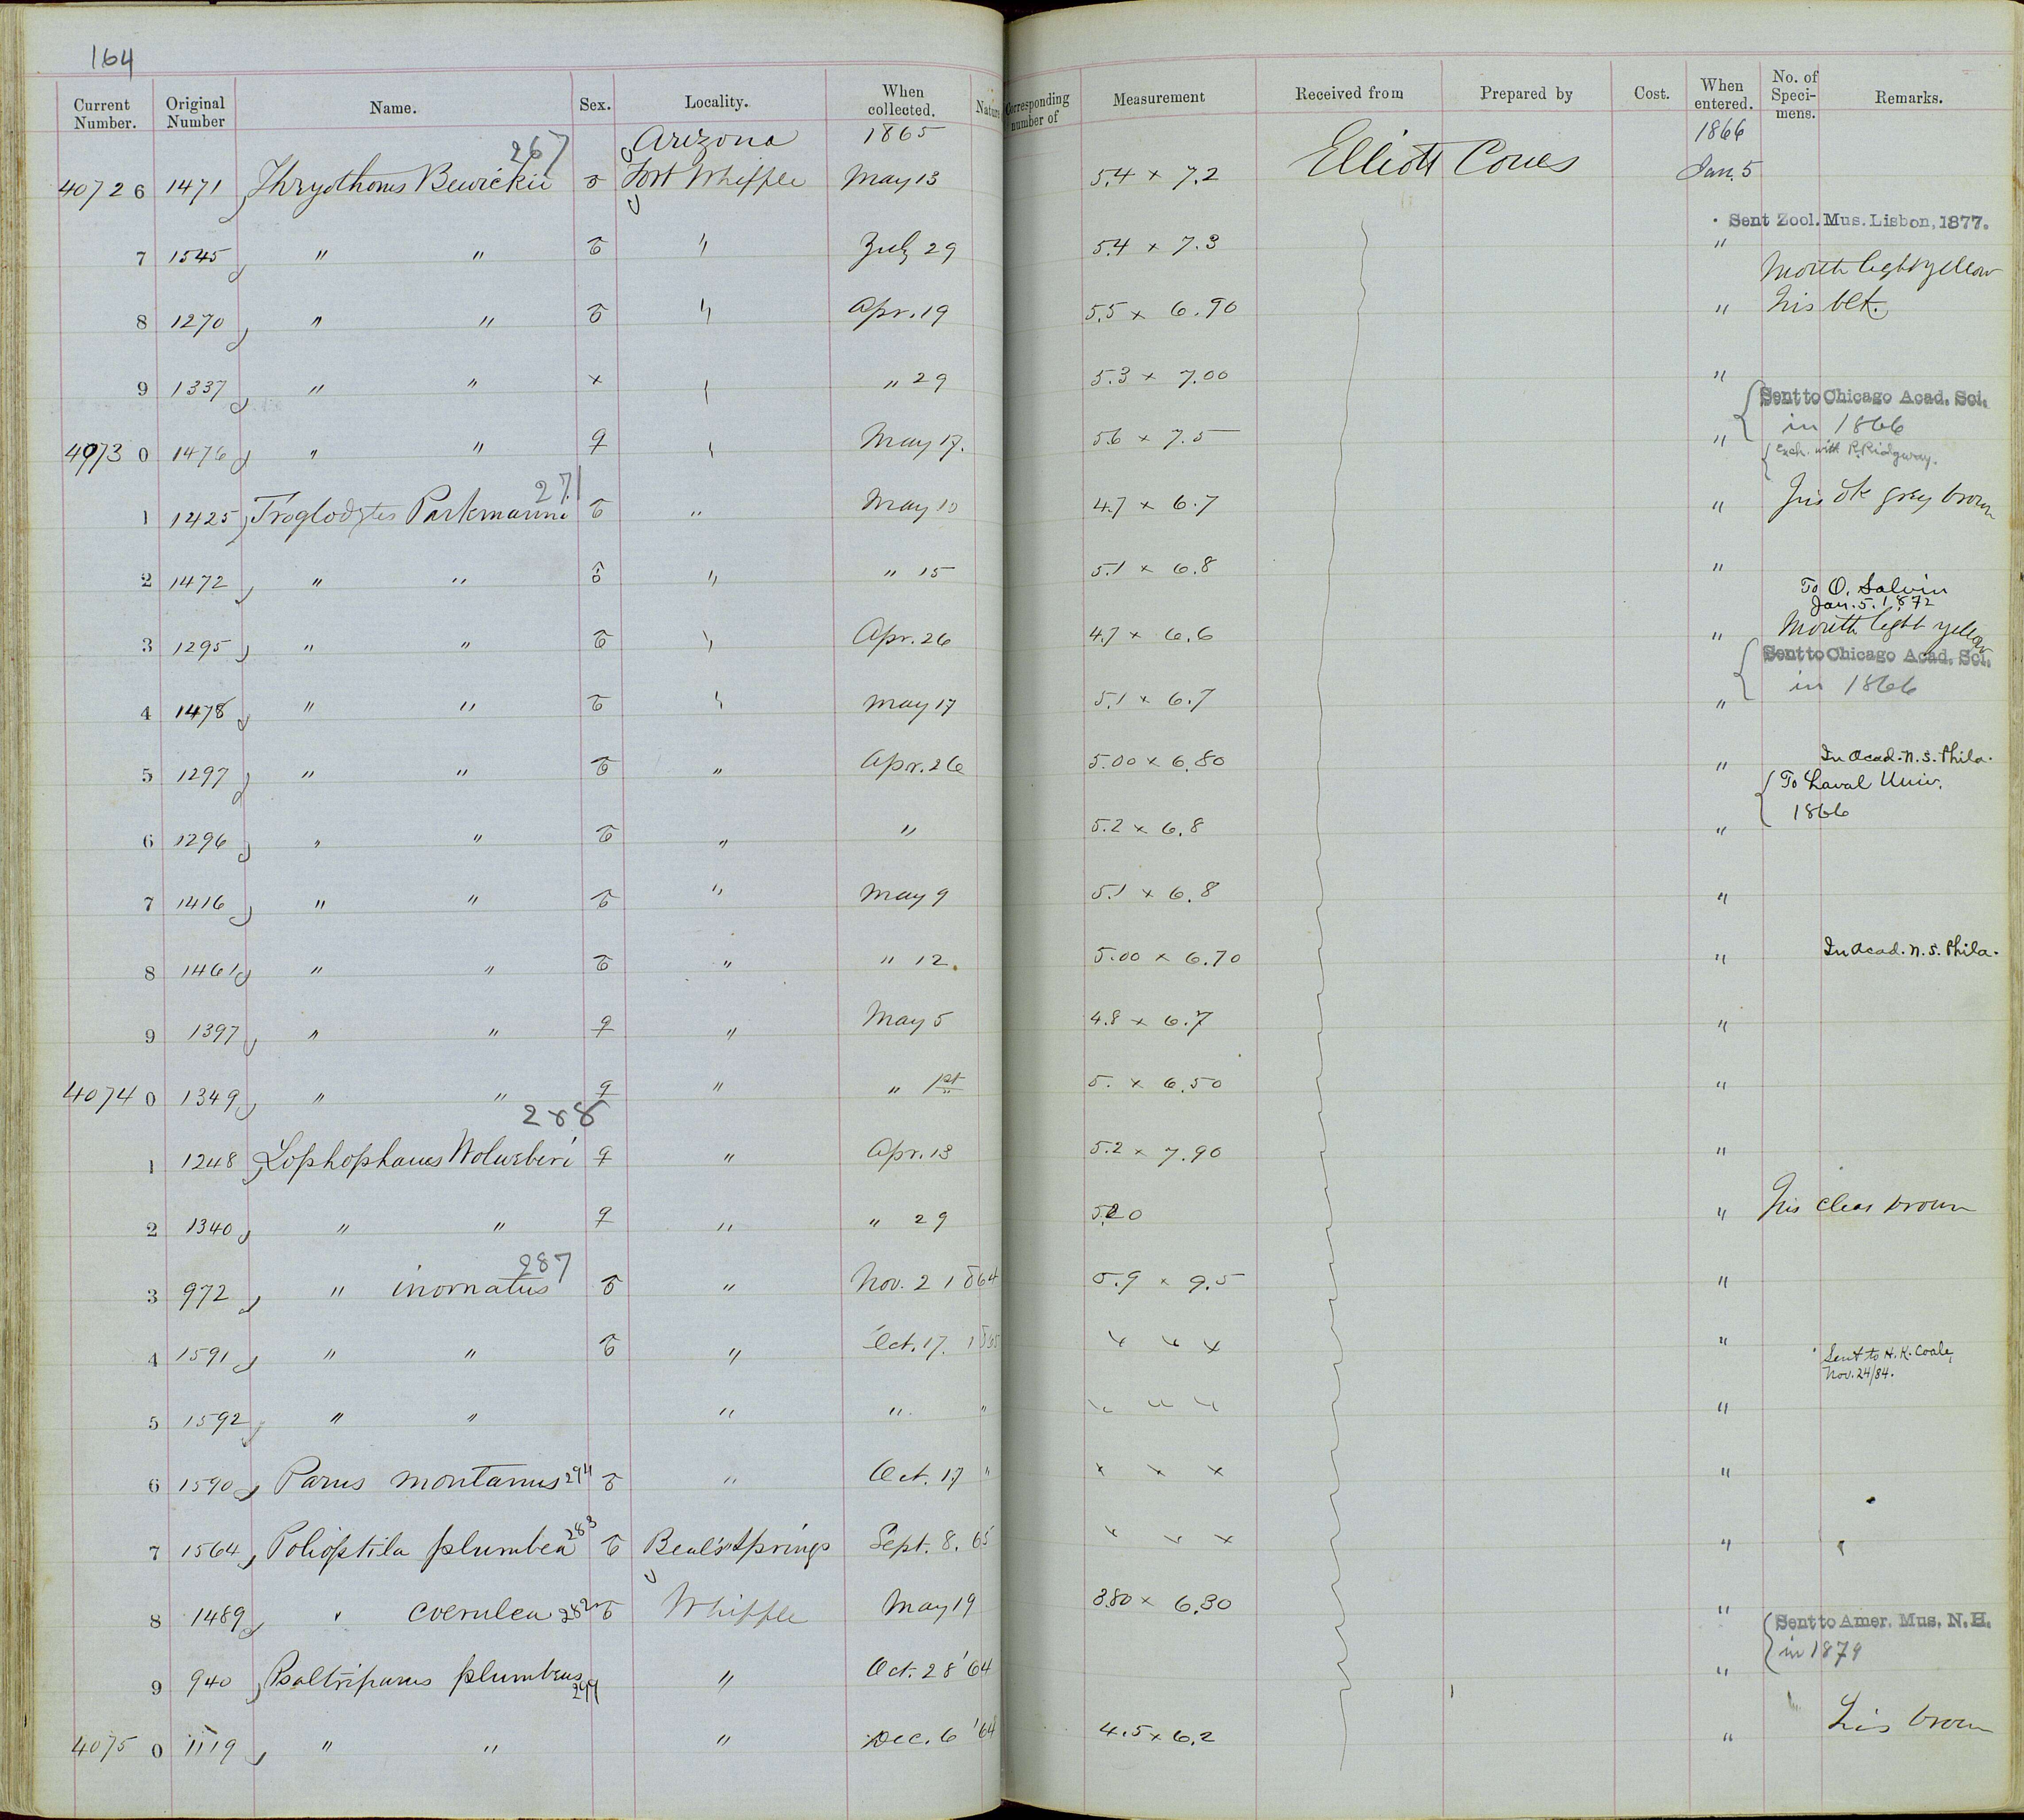 164
Current Number. Original Number Name. Sex. Locality. When collected. Nature Corresponding number of Measurement Received from Prepared by Cost. When entered. No. of Speci-mens. Remarks.
267 Arizona 1865 1866
40726 1471 Thryothorus Bewickii ♂ Fort Whipple May 13 5.4 × 7.2 Elliott Coues Jan. 5
Sent Zool. Mus. Lisbon, 1877.
7 1545 " " ♂ " July 29 5.4 × 7.3 "
Mouth light yellow
8 1270 " " ♂ " Apr. 19 5.5 × 6.90 " Iris blk.
9 1337 " " × " " 29 5.3 × 7.00 "
Sent to Chicago Acad. Sci.
in 1866
40730 1476 " " ♀ " May 17. 5.6 × 7.5 "
Exch. with R. Ridgway.
271
1 1425 Troglodytes Parkmanni ♂ " May 10 4.7 × 6.7 " Iris dk grey brown
2 1472 " " ♂ " " 15 5.1 × 6.8 "
To O. Salvin
Jan. 5. 1872
3 1295 " " ♂ " Apr. 26 4.7 × 6.6 " Mouth light yellow
Sent to Chicago Acad. Sci.
in 1866
4 1478 " " ♂ " May 17 5.1 × 6.7 "
5 1297 " " ♂ " Apr. 26 5.00 × 6.80 " In Acad. N. S. Phila.
To Laval Univ.
1866
6 1296 " " ♂ " " 5.2 × 6.8 "
7 1416 " " ♂ " May 9 5.1 × 6.8 "
8 1461 " " ♂ " " 12. 5.00 × 6.70 " In Acad. N. S. Phila.
9 1397 " " ♀ " May 5 4.8 × 6.7 "
40740 1349 " " ♀ " " 1st 5. × 6.50 "
288
1 1248 Lophophanes Wolweberi ♀ " Apr. 13 5.2 × 7.90 "
2 1340 " " ♀ " " 29 5.20 " Iris clear brown
287
3 972 " inornatus ♂ " Nov. 2 1864 5.9 × 9.5 "
4 1591 " " ♂ " Oct. 17. 1865 × × × "
Sent to H. K. Coale,
Nov. 24/84.
5 1592 " " " " " " " " "
6 1590 Parus montanus 294 ♂ " Oct. 17 " × × × "
7 1564 Polioptila plumbea 283 ♂ Beal's Springs Sept. 8. 65 × × × "
8 1489 " coerulea 282 ♂ Whipple May 19 3.80 × 6.30 "
Sent to Amer. Mus. N. H.
in 1879
9 940 Psaltriparus plumbeus 299 " Oct. 28 '64 "
40750 1119 " " " Dec. 6 '64 4.5 × 6.2 " Iris brown